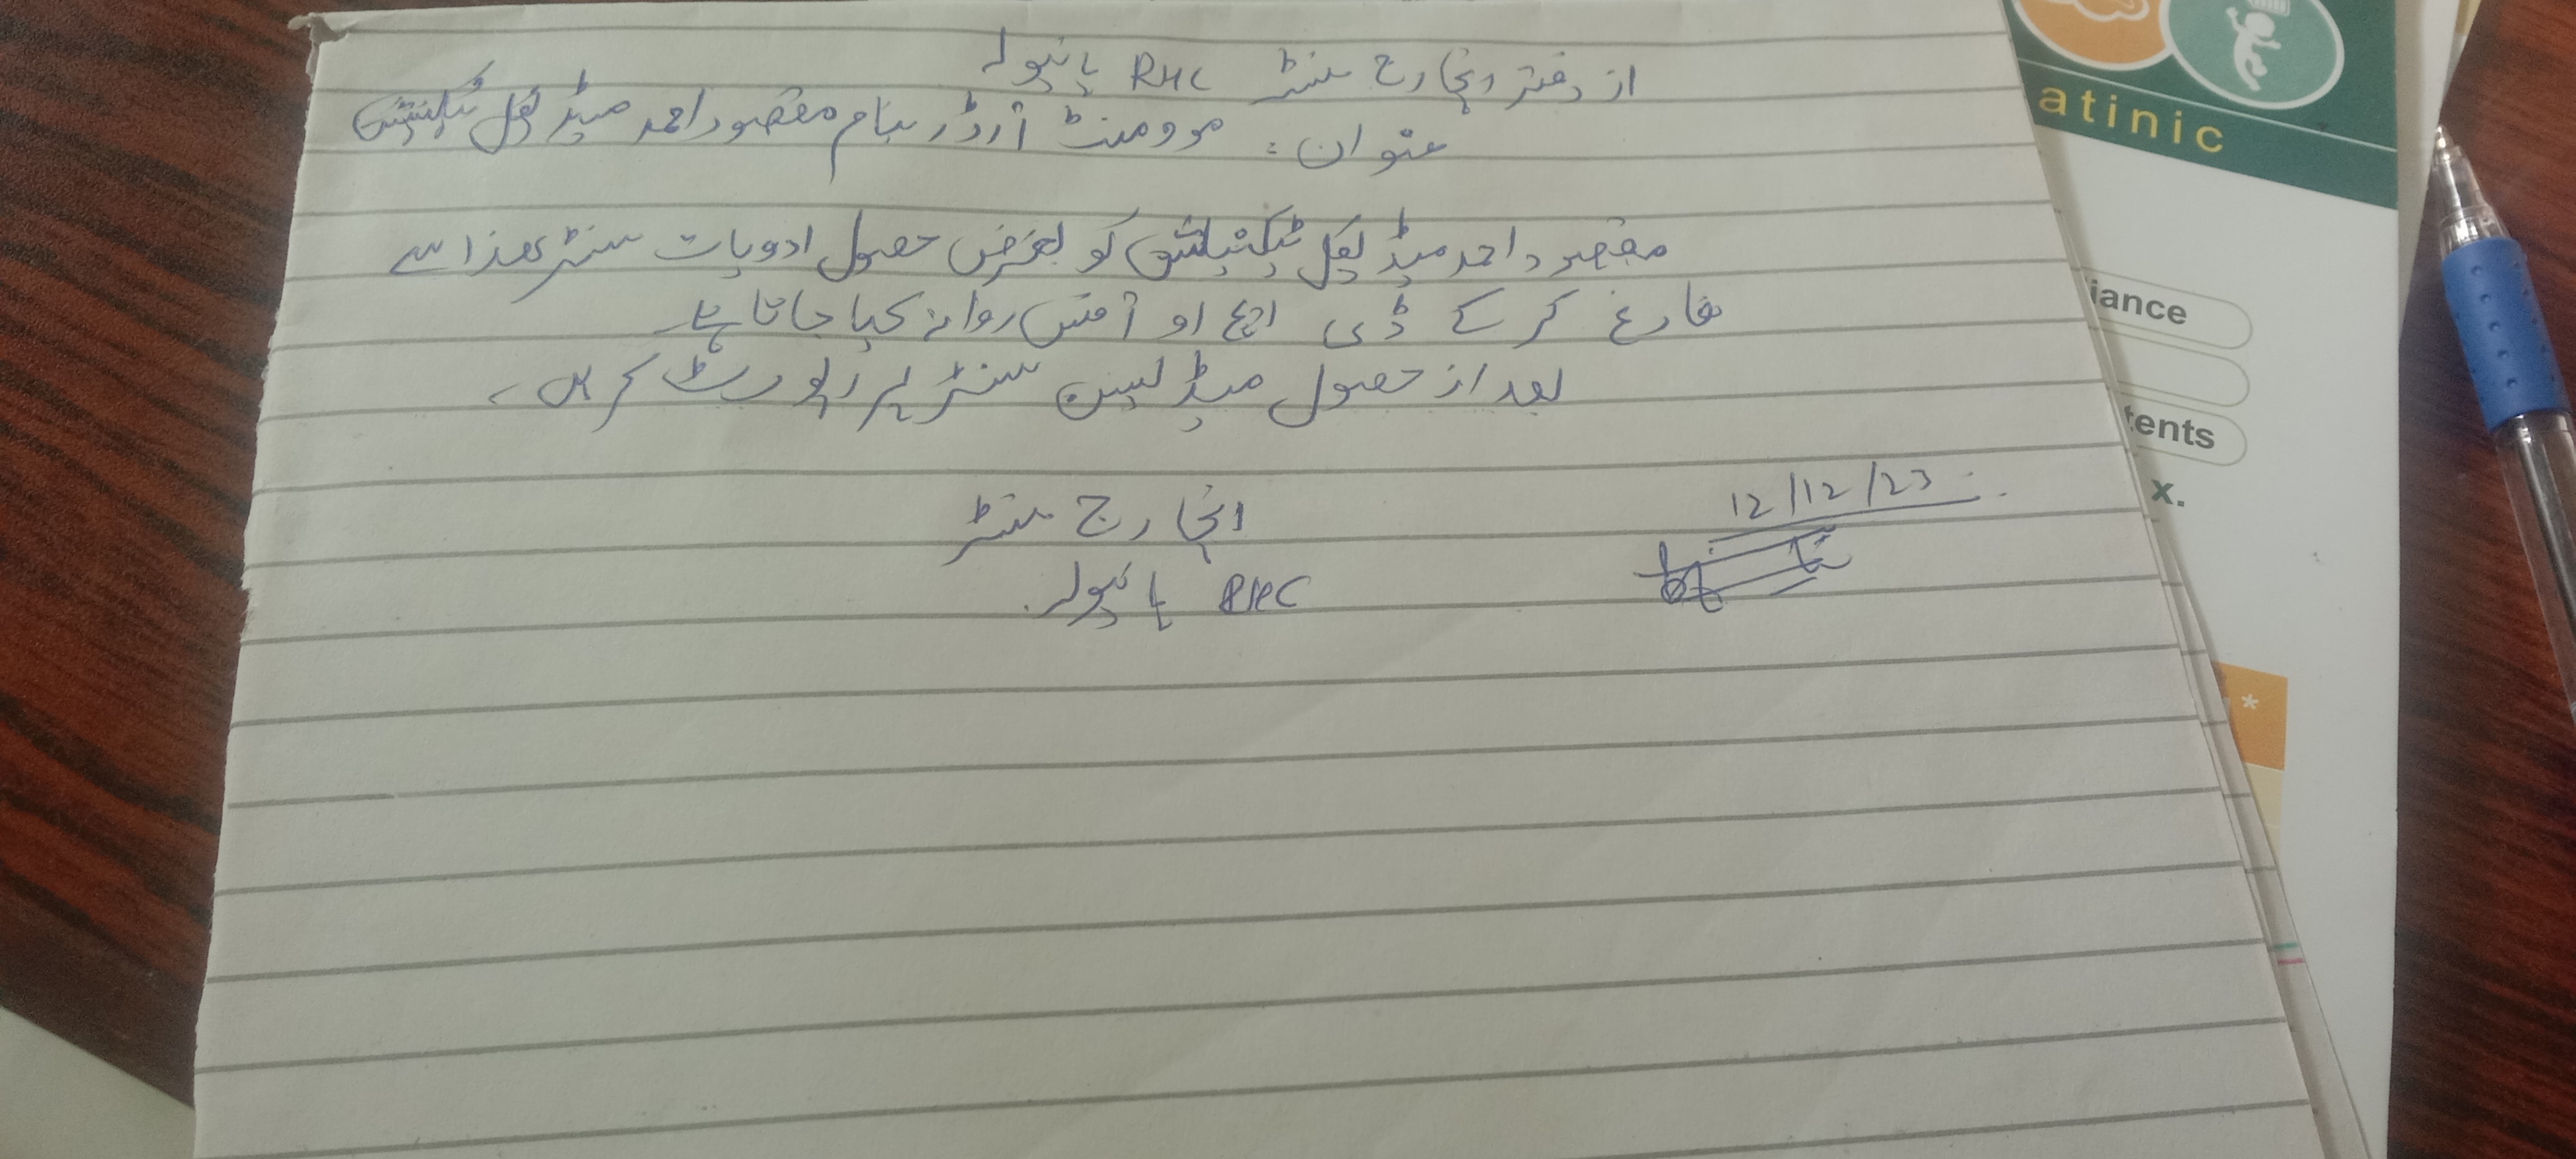 از دفتر انچارج سنٹر RHC پانپولہ
عنوان: موومنٹ آرڈر بنام مقصود احمد میڈیکل ٹیکنیشن
مقصود احمد میڈیکل ٹیکنیشن کو بغرض حصول ادویات سنٹر ھذا سے
فارغ کر کے ڈی ایچ او آفس روانہ کیا جاتا ہے۔
بعد از حصول میڈیسن سنٹر پر رپورٹ کریں۔
12/12/23
انچارج سنٹر
RHC پانپولہ
atinic
iance
tents
x.
*